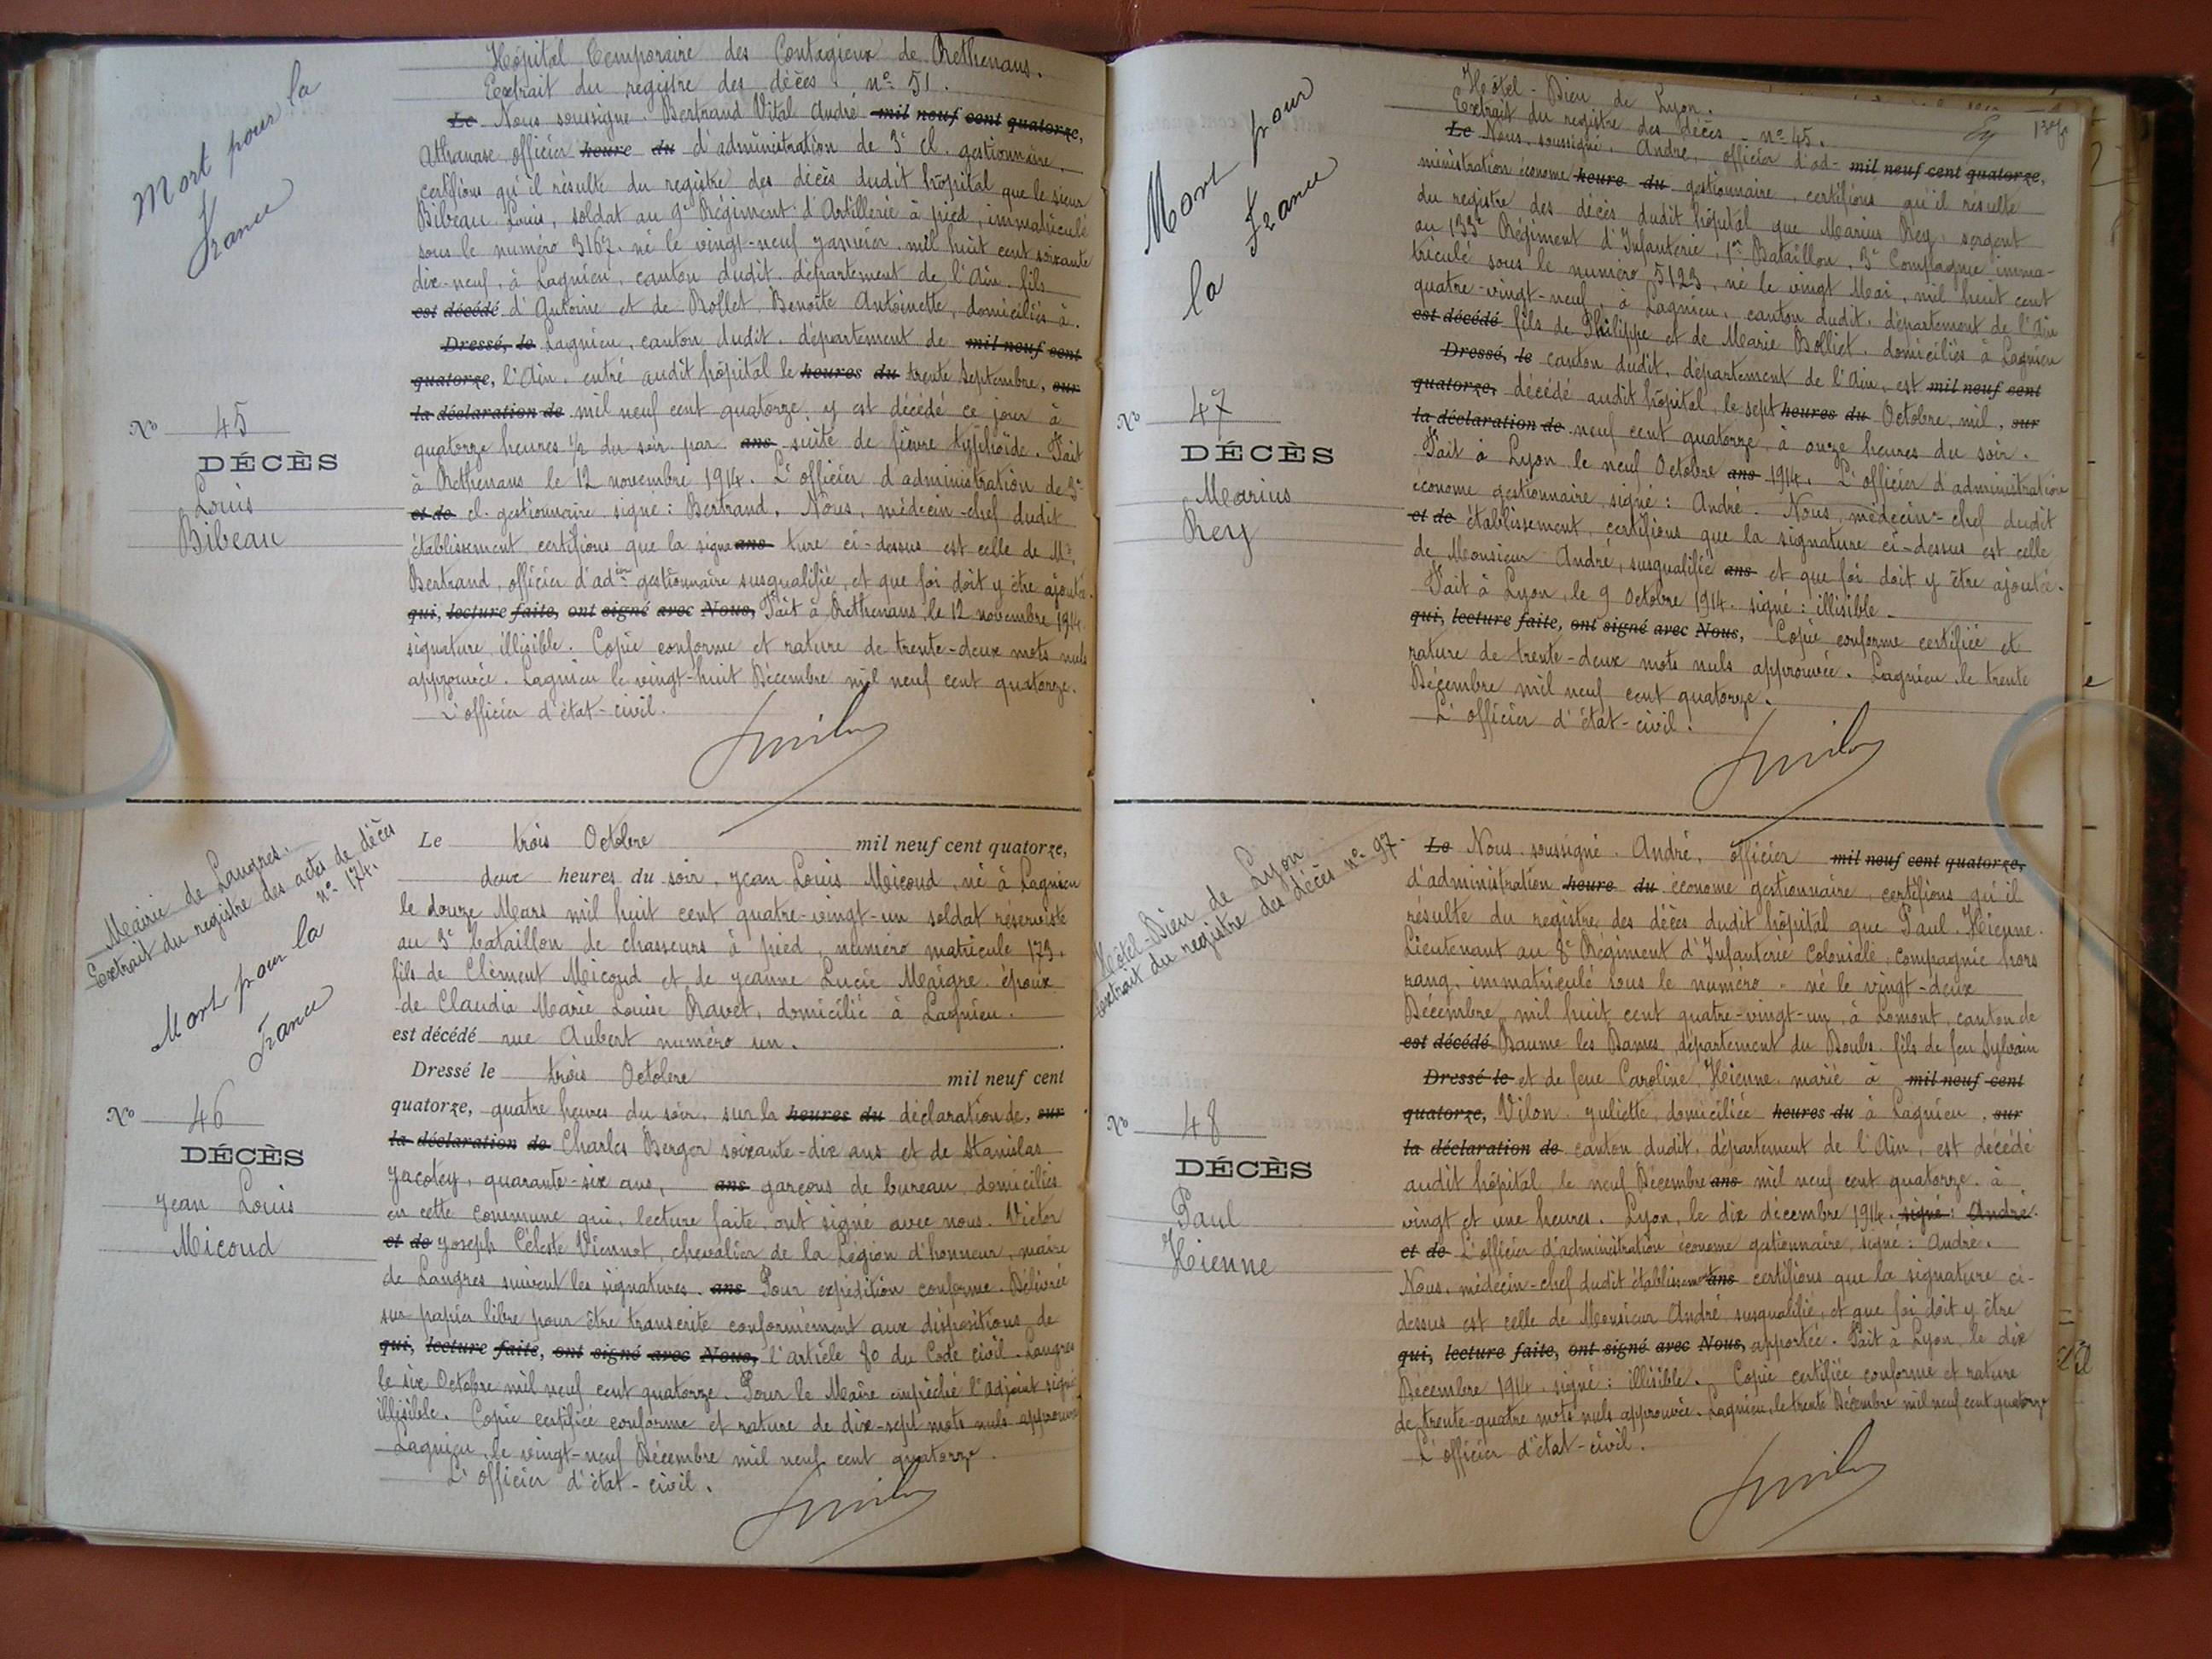 Mort pour la
France
Hôpital Temporaire des Contagieux de Rethenans.
Extrait du registre des décès. n° 51.
Le Nous soussigné. Bertrand Vital André mil neuf cent quatorze,
Athanase, officier heure du d'administration de 3e cl. gestionnaire
certifions qu'il résulte du registre des décès dudit hôpital que le sieur
Bibeau Louis, soldat au 9e Régiment d'Artillerie à pied, immatriculé
sous le numéro 3167. né le vingt-neuf janvier mil huit cent soixante
dix-neuf, à Lagnieu, canton dudit, département de l'Ain. fils
est décédé d'Antoine et de Rollet, Benoîte Antoinette, domiciliés à.
Dressé, le Lagnieu, canton dudit. département de mil neuf cent
quatorze, l'Ain. entré audit hôpital le heures du trente Septembre, sur
la déclaration de mil neuf cent quatorze, y est décédé ce jour à
quatorze heures ½ du soir par ans suite de fièvre typhoïde. Fait
à Rethenans le 12 novembre 1914. L'officier d'administration de 3e
et de cl. gestionnaire signé : Bertrand. Nous, médecin-chef dudit
établissement certifions que la signa ans ture ci-dessus est celle de Mr.
Bertrand, officier d'adion gestionnaire susqualifié, et que foi doit y être ajoutée.
qui, lecture faite, ont signé avec Nous, Fait à Rethenans, le 12 novembre 1914.
signature illisible. Copie conforme et rature de trente-deux mots nuls
approuvée. Lagnieu le vingt-huit Décembre mil neuf cent quatorze.
L'officier d'état-civil.
N° 45
DÉCÈS
Louis
Bibeau
Mairie de Langres.
Extrait du registre des actes de décès
n° 174.
Mort pour la
France
Le trois Octobre mil neuf cent quatorze,
deux heures du soir, Jean Louis Micoud, né à Lagnieu
le douze Mars mil huit cent quatre-vingt-un soldat réserviste
au 3e bataillon de chasseurs à pied, numéro matricule 173,
fils de Clément Micoud et de Jeanne Lucie Maigre. époux
de Claudia Marie Louise Ravet, domicilié à Lagnieu.
est décédé rue Aubert numéro un.
Dressé le trois Octobre mil neuf cent
quatorze, quatre heures du soir, sur la heures du déclaration de, sur
la déclaration de Charles Berger soixante-dix ans et de Stanislas
Jacotey, quarante-six ans, ans garçons de bureau, domiciliés
en cette commune qui, lecture faite, ont signé avec nous. Victor
et de Joseph Céleste Viennot, chevalier de la Légion d'honneur, maire
de Langres suivent les signatures. ans Pour expédition conforme. Délivrée
sur papier libre pour être transcrite conformément aux dispositions de
qui, lecture faite, ont signé avec Nous, l'article 80 du Code civil. Langres
le six Octobre mil neuf cent quatorze. Pour le Maire empêché l'adjoint signé
illisible. Copie certifiée conforme et rature de dix-sept mots nuls approuvée
Lagnieu, le vingt-neuf Décembre mil neuf cent quatorze.
L'officier d'état-civil.
N° 46
DÉCÈS
Jean Louis
Micoud
Mort pour
la France
Hôtel-Dieu de Lyon.
Extrait du registre des décès. n° 45.
Le Nous, soussigné, André, officier d'ad- mil neuf cent quatorze,
ministration économe heure du gestionnaire, certifions qu'il résulte
du registre des décès dudit hôpital que Marius Rey, sergent
au 133e Régiment d'Infanterie, 1er Bataillon, 3e Compagnie imma-
triculé sous le numéro 5123, né le vingt Mai, mil huit cent
quatre-vingt-neuf, à Lagnieu, canton dudit, département de l'Ain
est décédé fils de Philippe et de Marie Bolliet, domiciliés à Lagnieu
Dressé, le canton dudit, département de l'Ain, est mil neuf cent
quatorze, décédé audit hôpital, le sept heures du Octobre, mil, sur
la déclaration de neuf cent quatorze, à onze heures du soir.
Fait à Lyon le neuf Octobre ans 1914. L'officier d'administration
économe gestionnaire, signé : André. Nous, médecin-chef dudit
et de établissement, certifions que la signature ci-dessus est celle
de Monsieur André, susqualifié ans et que foi doit y être ajoutée.
Fait à Lyon, le 9 Octobre 1914. signé : illisible.
qui, lecture faite, ont signé avec Nous, Copie conforme certifiée et
rature de trente-deux mots nuls approuvée. Lagnieu le trente
Décembre mil neuf cent quatorze.
L'officier d'état-civil.
N° 47
DÉCÈS
Marius
Rey
Hôtel-Dieu de Lyon
Extrait du registre des décès n° 97.
Le Nous soussigné. André, officier mil neuf cent quatorze,
d'administration heure du économe gestionnaire, certifions qu'il
résulte du registre des décès dudit hôpital que Paul Hienne.
Lieutenant au 8e Régiment d'Infanterie Coloniale. compagnie hors
rang, immatriculé sous le numéro " né le vingt-deux
Décembre mil huit cent quatre-vingt-un, à Lomont, canton de
est décédé Baume les Dames, département du Doubs. fils de feu Sylvain
Dressé le et de feue Caroline, Hienne. marié à mil neuf cent
quatorze, Vilon. Juliette, domiciliée heures du à Lagnieu, sur
la déclaration de canton dudit, département de l'Ain, est décédé
audit hôpital, le neuf Décembre ans mil neuf cent quatorze. à
vingt et une heures. Lyon, le dix décembre 1914. signé : André.
et de L'officier d'administration économe gestionnaire, signé : André.
Nous, médecin-chef dudit établissement ans certifions que la signature ci-
dessus est celle de Monsieur André susqualifié, et que foi doit y être
qui, lecture faite, ont signé avec Nous, apportée. Fait à Lyon, le dix
Décembre 1914. signé : illisible. Copie certifiée conforme et rature
de trente-quatre mots nuls approuvée. Lagnieu, le trente Décembre mil neuf cent quatorze
L'officier d'état-civil.
N° 48
DÉCÈS
Paul
Hienne